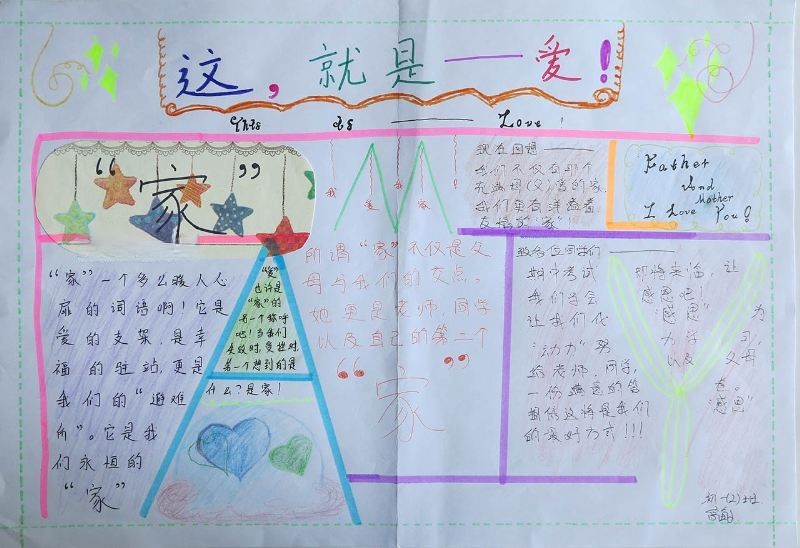 这，就是——爱！
This is —— Love!
“家”
“家”一个多么暖人心
扉的词语啊！它是
爱的支架，是幸
福的驻站，更是
我们的“避难
所”。它是我
们永恒的
“家”
“爱”
也许是
“家”的
另一个称呼
吧！当我们
失败时，受挫时，
第一个想到的是
什么？是家！
我
爱
家
所谓“家”不仅是父
母与我们的交点。
她更是老师，同学
以及自己的第二个
“家”
现在回想——
我们不仅有那个
充满母(父)爱的家
我们更有洋溢着
友情的“家”！
Father
And
Mother
I Love You!
致各位同学们
期中考试 即将来临，让
我们学会 感恩吧！
让我们化 “感恩” 为
“动力” 努力学习，
给老师，同学， 以及父母
一份满意的答卷。
相信这将是我们 “感恩”
的最好方式！！！
初一(2)班